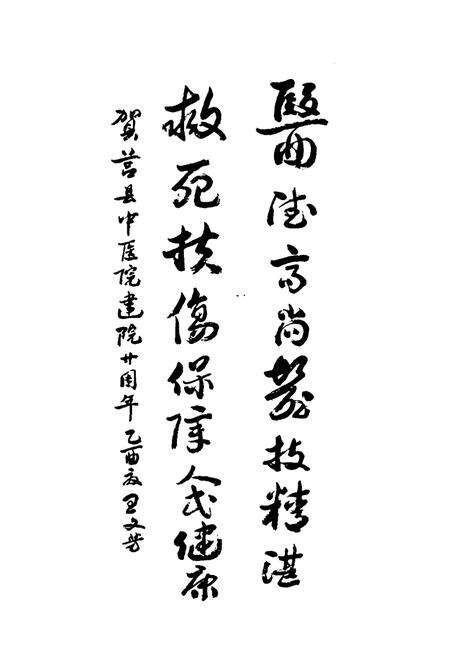 醫德高尚藝技精湛
救死扶傷保障人民健康
賀莒县中医院建院廿周年 乙酉夏 王文芳